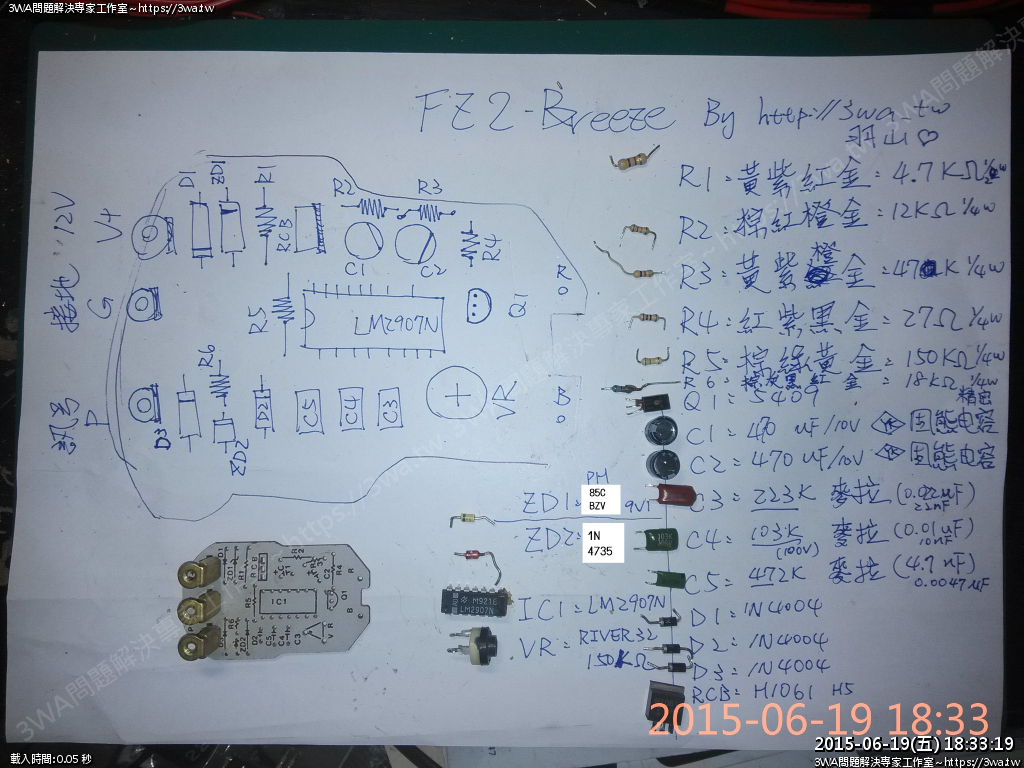 3WA問題解決專家工作室~https://3wa.tw
3WA問題解決專家工作室~https://3wa.tw
FZ2-Breeze By http://3wa.tw
羽山♡
R1=黃紫紅金=4.7KΩ ½w
R2=棕紅橙金=12KΩ ¼w
R3=黃紫橙金=47K ¼w
R4=紅紫黑金=27Ω ¼w
R5=棕綠黃金=150KΩ ¼w
R6=棕灰黑紅金=18KΩ ¼w
精密
Q1=5409
C1=470 uF/10V 固態电容
C2=470uF/10V 固態电容
C3=223K 麥拉(0.022uF)
22nF
C4=103K 麥拉(0.01uF)
(100V) 10nF
C5=472K 麥拉(4.7nF)
0.0047uF
D1=1N4004
D2=1N4004
D3=1N4004
RCB=H1061 H5
PH
ZD1= 85C
BZV 9V1
ZD2= 1N
4735
IC1=LM2907N
VR=RIVER32
150KΩ
M921E
LM2907N
接地:12V
V+
G
訊号
P
D1
ZD1
R1
RCB
R2
R3
C1
C2
R4
R5
LM2907N
Q1
R
R6
D3
ZD2
D2
C5
C4
C3
VR
B
IC1
2015-06-19 18:33
2015-06-19(五) 18:33:19
載入時間:0.05 秒
3WA問題解決專家工作室~https://3wa.tw